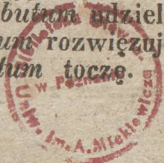 butum udziel
um rozwięzuj
tum toczę.
w Pozna
Uniw. im. A. Mickiewicza